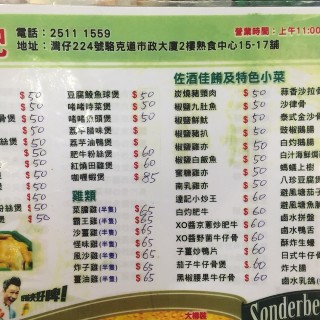 電話：2511 1559
營業時間：上午11:00
地址：灣仔224號駱克道市政大廈2樓熟食中心15-17舖
豆腐鯪魚球煲 $50
啫啫時菜煲 $50
啫啫魚頭煲 $50
荔芋臘味煲
荔芋油鴨煲
肥牛粉絲煲 $60
紅燒田雞煲 $60
咖喱蝦煲 $85
雞類
菜膽雞(半隻) $65
霸王雞(半隻) $65
沙薑雞(半隻) $65
怪味雞(半隻) $65
風沙雞(半隻) $65
炸子雞(半隻) $65
薑油雞(半隻) $65
佐酒佳餚及特色小菜
炭燒豬頸肉 $50
椒鹽九肚魚 $50
椒鹽鮮魷 $50
椒鹽豬扒 $50
椒鹽雞亦 $50
椒鹽白飯魚 $50
蜜糖雞亦 $50
南乳雞亦 $50
達記小炒王 $60
白灼肥牛 $60
XO醬京蔥炒肥牛 $60
XO醬野菌牛仔骨 $60
子薑炒鴨片 $60
茄子牛仔骨煲 $60
黑椒腰果牛仔骨 $60
蒜香沙拉骨
沙律骨
泰式金沙骨
豉椒鵝腸
白灼鵝腸
白汁海鮮
八珍豆腐煲
避風塘茄子
避風塘
鹵水拼盤
鹵水墨魚
酥炸生蠔
日式
炸大腸
鹵水乳鴿
大榔
Sonderbe